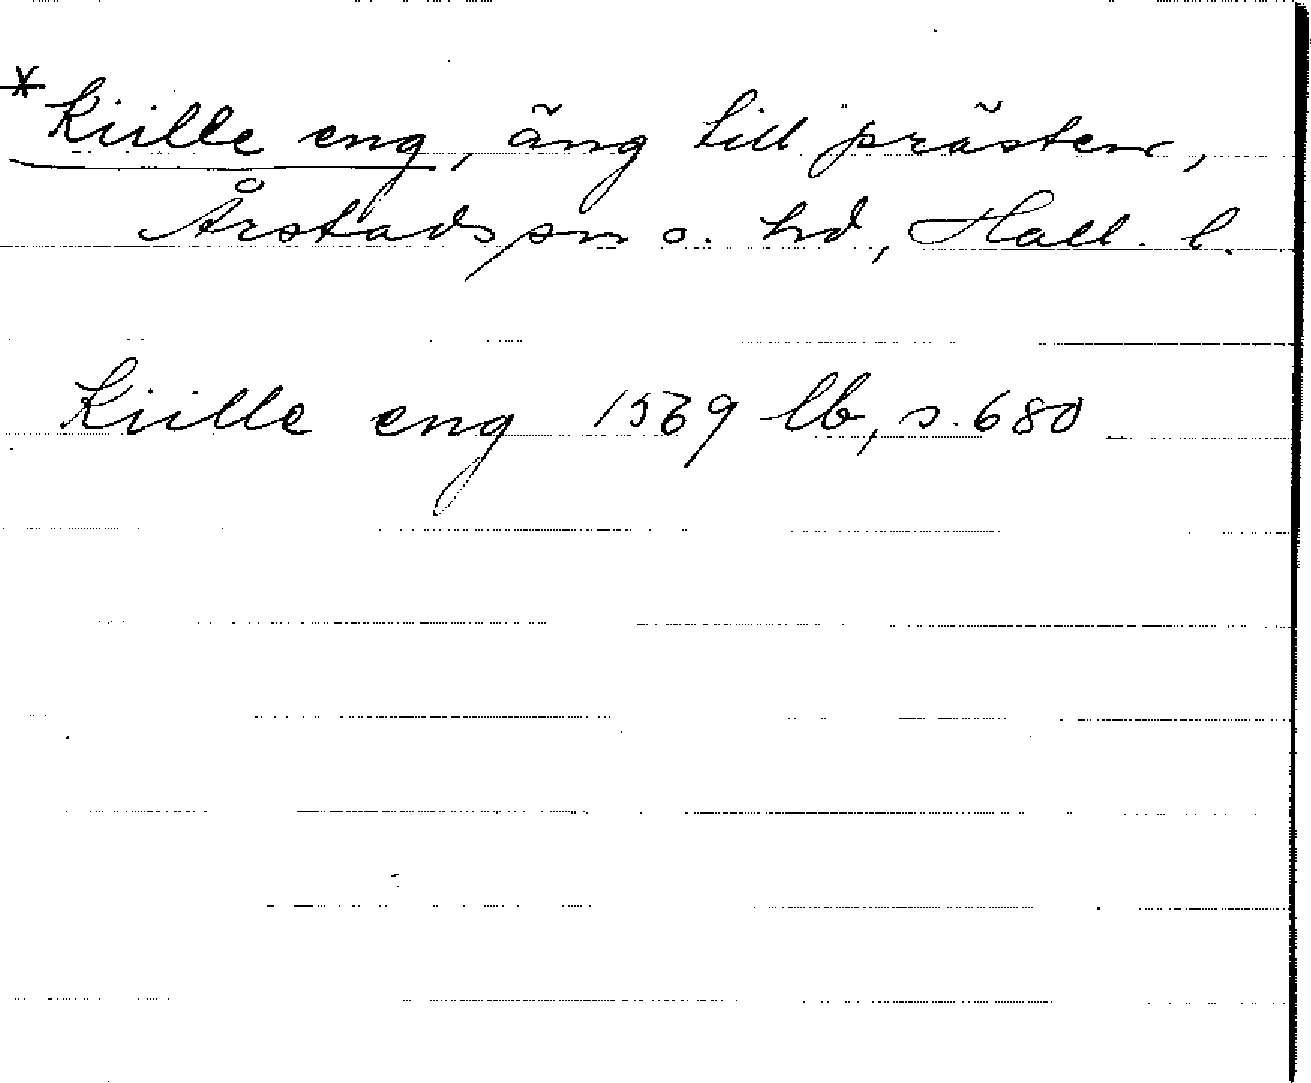 * Kiille eng, äng till prästen,
Årstads sn o. hd, Hall. l.
Kiille eng 1569 lb, s. 680